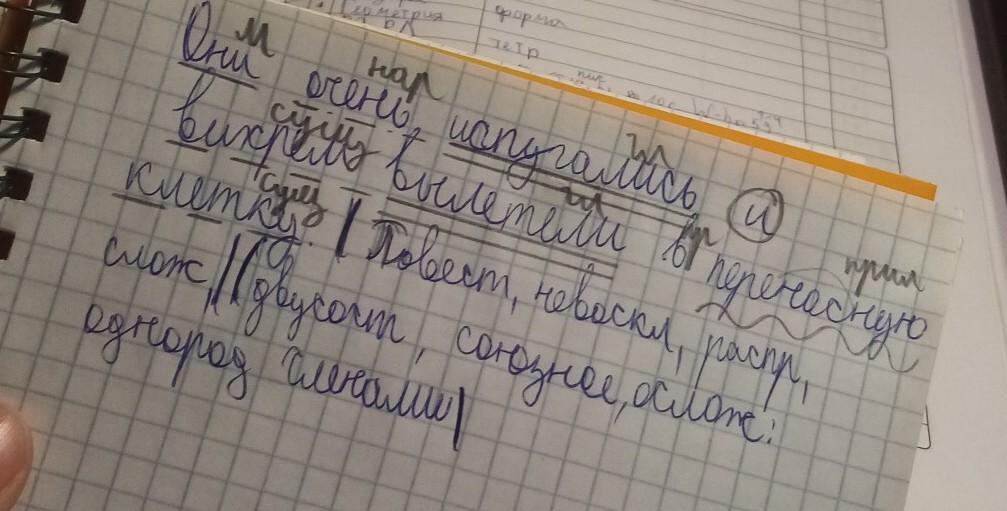 Геометрия
форма
тетр
м
Они очень испугались и
нар
вихрем вылетели в переносную
сущ
гл
гл
пр
прил
клетку. | Повест, невоскл, распр,
сущ
слож, || (двусост, союзное, ослож:
однород членами |